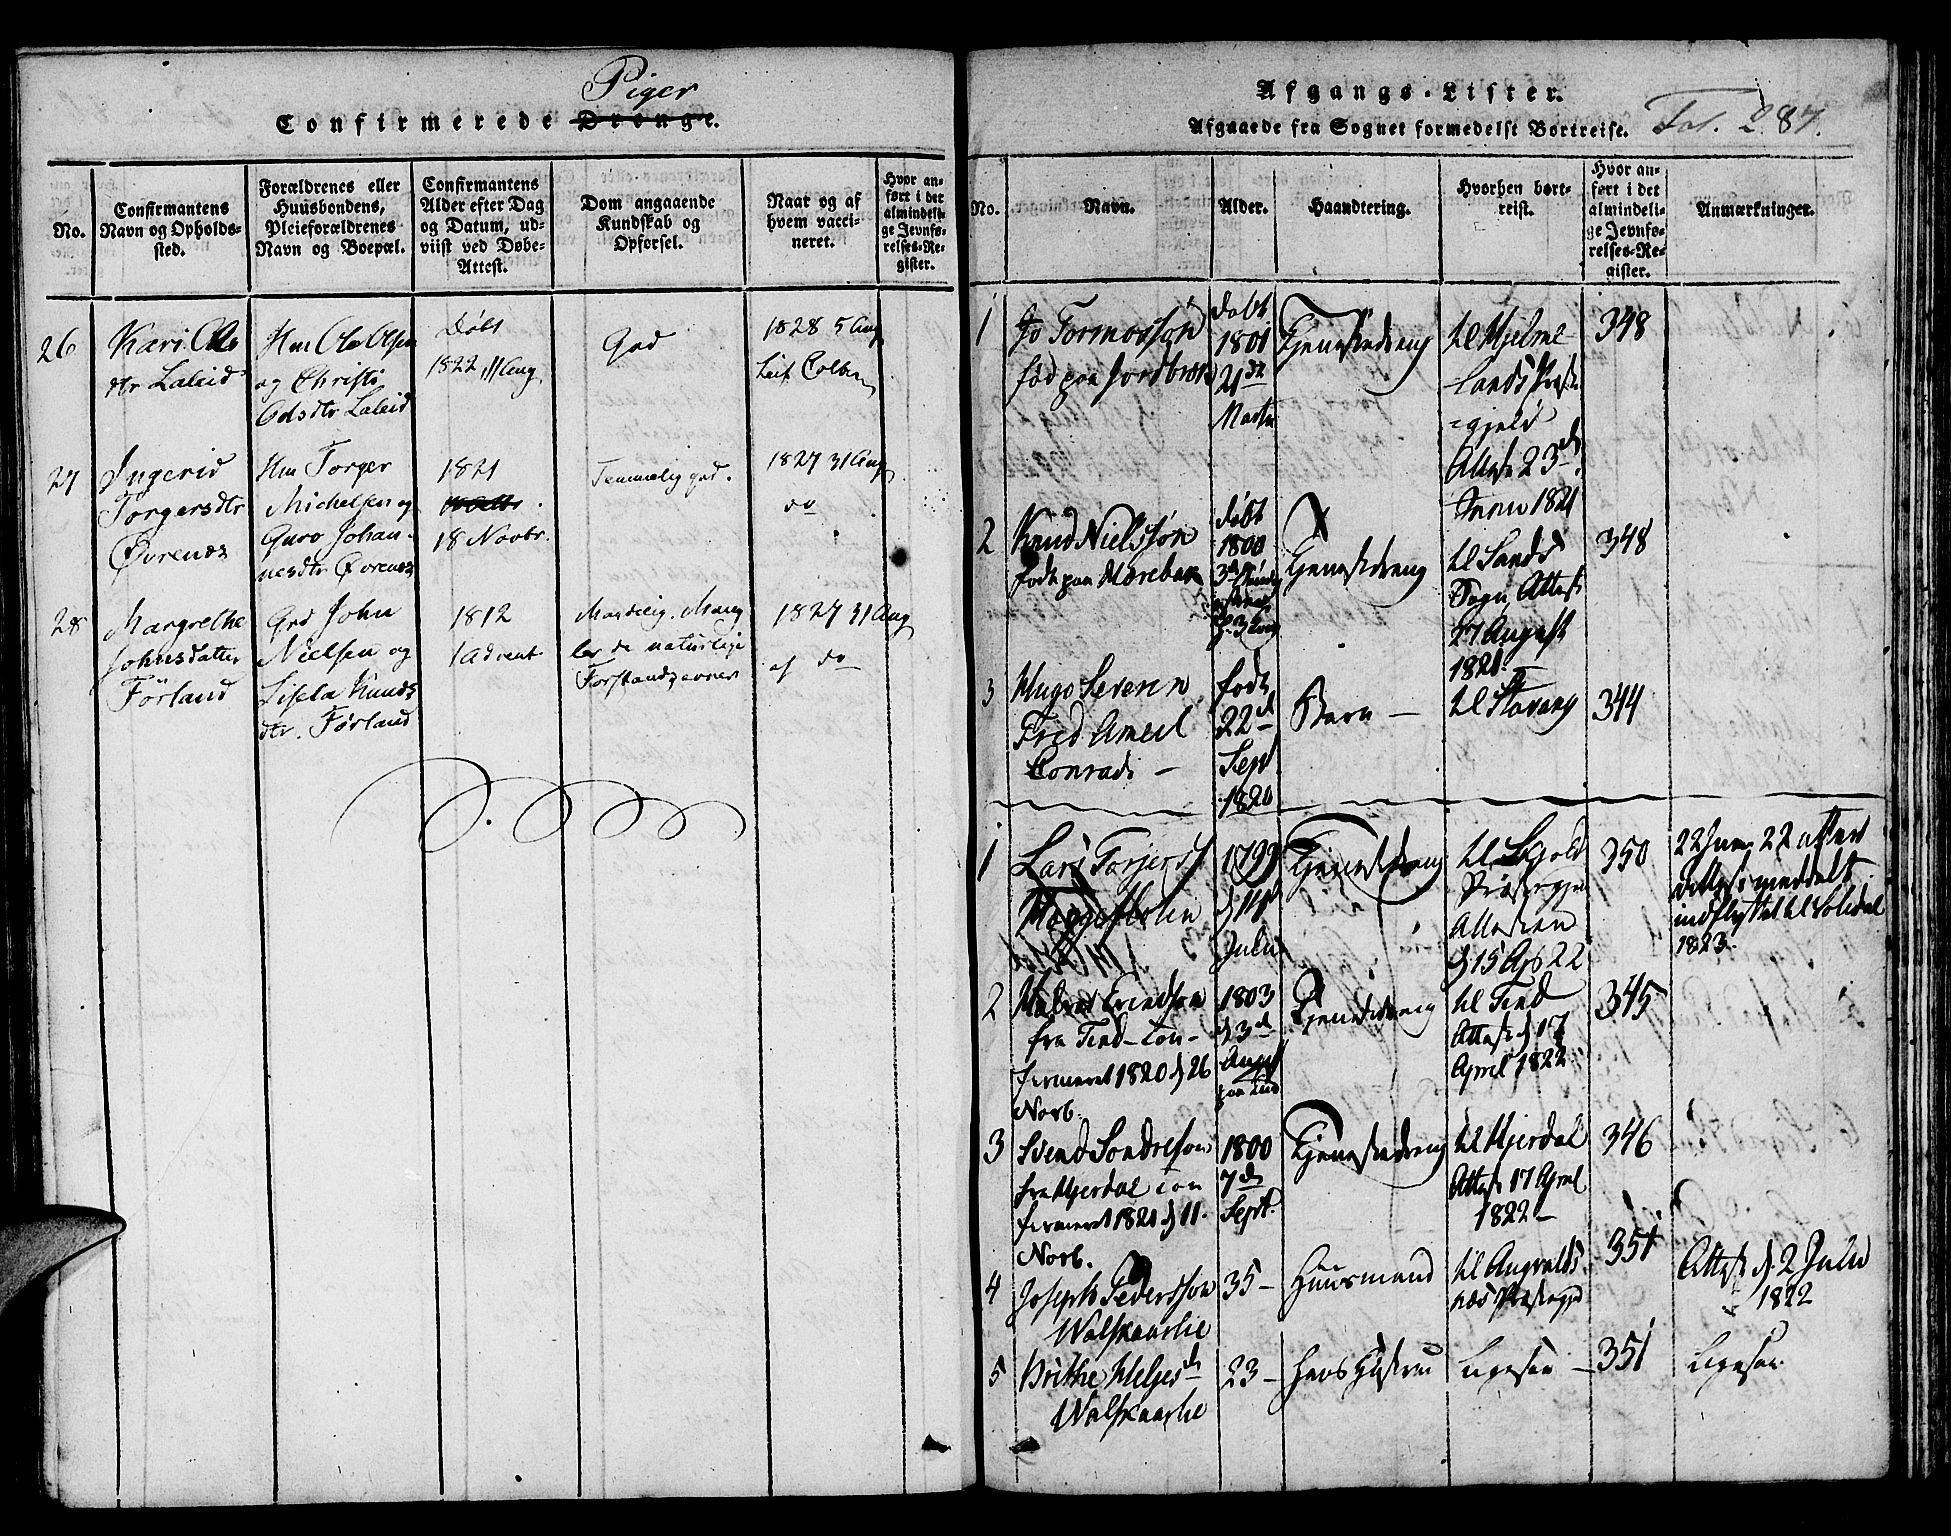 Piger
Confirmerede Drenge.
No.
Confirmantens
Navn og Opholds-
sted.
Forældrenes eller
Huusbondens,
Pleieforældrenes
Navn og Boepæl.
Confirmantens
Alder efter Dag
og Datum, ud-
viist ved Døbe-
Attest.
Dom angaaende
Kundskab og
Opførsel.
Naar og af
hvem vacci-
neret.
Hvor an-
ført i det
almindeli-
ge Jevnfø-
relses-Re-
gister.
26
Kari Ols
dtr Laleid
Hm Ole Olsen
og Christi
Odsdtr Laleid
Døbt
1822 11 Aug
God
1828 5 Aug
Leif Colben
27
Ingerid
Torgersdtr
Øvrenæs
Hm Torger
Michelsen og
Guro Johan-
nesdtr Øvrenæs
1821
18 Novbr.
Temmelig god.
1827 31 Aug
do
28
Margrethe
Johnsdatter
Førland
Grd John
Nielsen og
Lisela Knuds
dtr. Førland
1812
1 Advent
Maadelig. Mang
ler de naturlige
Forstandsevner
1827 31 Aug
af do
Afgangs-Lister.
Afgaaede fra Sognet formedelst Bortreise.
Fol. 287.
No.
Navn.
Alder.
Haandtering.
Hvorhen bort-
reist.
Hvor an-
ført i det
almindeli-
ge Jevnfø-
relses-Re-
gister.
Anmærkninger.
1
Jo Tormodsøn
fød paa Jordbrek
døbt
1801
21de
Martii
Tjenestedreng
til Hjelme-
lands Præste
=gjeld
Attest 23d
Junii 1821
348
2
Knud Nielssøn
født paa Mærebak
døbt
1800
Tjenestedreng
til Sands
Sogn Attest
27 August
1821.
348
3
Hugo Severin
Fred Ameil
Conradi –
født
22d
Sept
1820
Barn –
til Stavang
344
1
Lars Torjers
1799
d 11te
Julii
Tjenestedreng
til Skjold
Præstegje
Attesten
d 15 Apr 22
350
22 Jun 22
Attest meddelt
indflyttet til
1823.
2
Halvor Erindson
fra Tind – Con-
firmeret 1820 d 26
Norb.
1803
d 3d
Augst
paa Tind
Tjenestedreng
til Tind
Attest d 17
April 1822
345
3
Svend Sondreson
fra Hjerdal con
firmeret 1821 d 11.
Norb.
1800
7d
Sept.
Tjenestedreng
til Hjerdal
Attest 17 April
1822 –
346
4
Joseph Pederssøn
Walskaarlie
35 –
Huusmand
til Augvalds
næs Præstegje
351
Attest d. 2 Julii
1822
5
Brithe Helgesd
Walskaarlie
23 –
Hans Hustrue
Ligesaa –
351
Ligesaa.